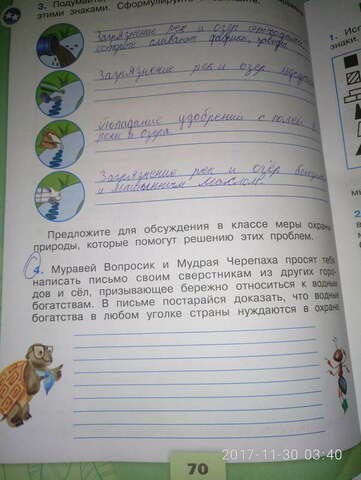 3. Подумайте,
этими знаками. Сформулируйте
Загрязнение рек и озёр
которой сливают фабрики, заводы.
Загрязнение рек и озёр
Попадание удобрений с полей в
реки и озёра
Загрязнение рек и озёр
и машинным маслом.
Предложите для обсуждения в классе меры охраны
природы, которые помогут решению этих проблем.
4. Муравей Вопросик и Мудрая Черепаха просят тебя
написать письмо своим сверстникам из других горо-
дов и сёл, призывающее бережно относиться к водным
богатствам. В письме постарайся доказать, что водные
богатства в любом уголке страны нуждаются в охране.
70
1. Исп
знаки.
2
2017-11-30 03:40